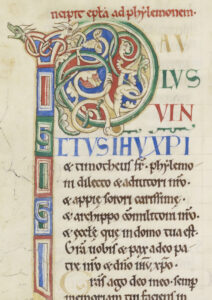 ncipit epta ad phylemonem.
P AV
LVS
VIN
CTUS IHU XPI
& timotheus fr. phylemo
ni dilecto & adiutori nro.
& appie sorori carissime
& archippo commilitoni nro.
& eccle que in domo tua est.
Gra uobis & pax a deo pa
tre nro & dno ihu xpo.
ras ago deo meo. semp
memoriam tui faciens in